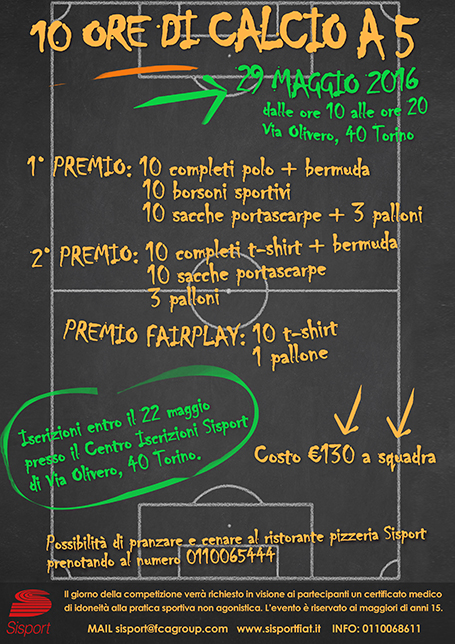 10 ORE DI CALCIO A 5
29 MAGGIO 2016
dalle ore 10 alle ore 20
Via Olivero, 40 Torino
1° PREMIO: 10 completi polo + bermuda
10 borsoni sportivi
10 sacche portascarpe + 3 palloni
2° PREMIO: 10 completi t-shirt + bermuda
10 sacche portascarpe
3 palloni
PREMIO FAIRPLAY: 10 t-shirt
1 pallone
Iscrizioni entro il 22 maggio
presso il Centro Iscrizioni Sisport
di Via Olivero, 40 Torino.
Costo €130 a squadra
Possibilità di pranzare e cenare al ristorante pizzeria Sisport
prenotando al numero 0110065444
Sisport
Il giorno della competizione verrà richiesto in visione ai partecipanti un certificato medico
di idoneità alla pratica sportiva non agonistica. L'evento è riservato ai maggiori di anni 15.
MAIL sisport@fcagroup.com www.sisportfiat.it INFO: 0110068611